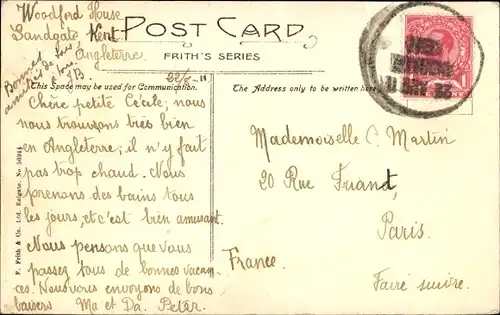 Woodford House
Sandgate Kent
Angleterre
22/8 - 11
POST CARD
FRITH'S SERIES
This Space may be used for Communication.
The Address only to be written here
Chère petite Cécile; nous
nous trouvons très bien
en Angleterre; il n'y fait
pas trop chaud. Nous
prenons des bains tous
les jours, et c'est bien amusant.
Nous pensons que vous
passez tous de bonnes vacan-
ces. Nous vous envoyons de bons
baisers Ma et Da. Peter.
Mademoiselle C. Martin
20 Rue Friant,
Paris.
France.
Faire suivre.
F. Frith & Co. Ltd. Reigate. No.